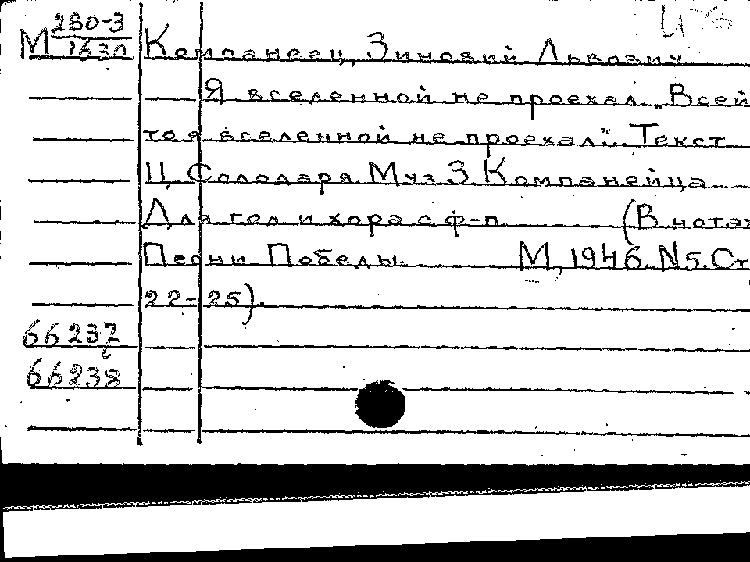 М 280-3
1630
Компанеец, Зиновий Львович
Я вселенной не проехал. "Всей
то я вселенной не проехал". Текст
Ц. Солодаря Муз З. Компанейца
Для гол и хора с ф-п. (В нотах
Песни Победы. М, 1946. N5. Ст
22-25).
66237
66238